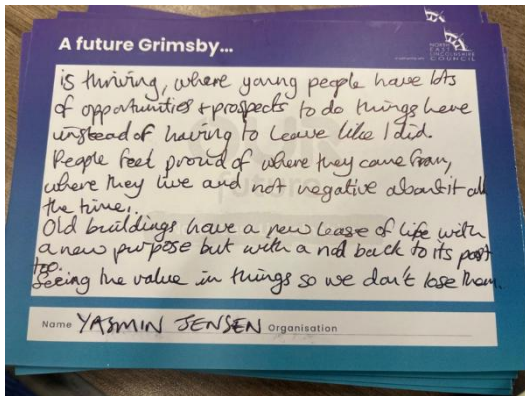 A future Grimsby...
NORTH
EAST
LINCOLNSHIRE
COUNCIL
is thriving, where young people have lots
of opportunities + prospects to do things here
instead of having to leave like I did.
People feel proud of where they came from,
where they live and not negative about it all
the time.
Old buildings have a new lease of life with
a new purpose but with a nod back to its past
too.
Seeing the value in things so we don't lose them.
Name YASMIN JENSEN Organisation